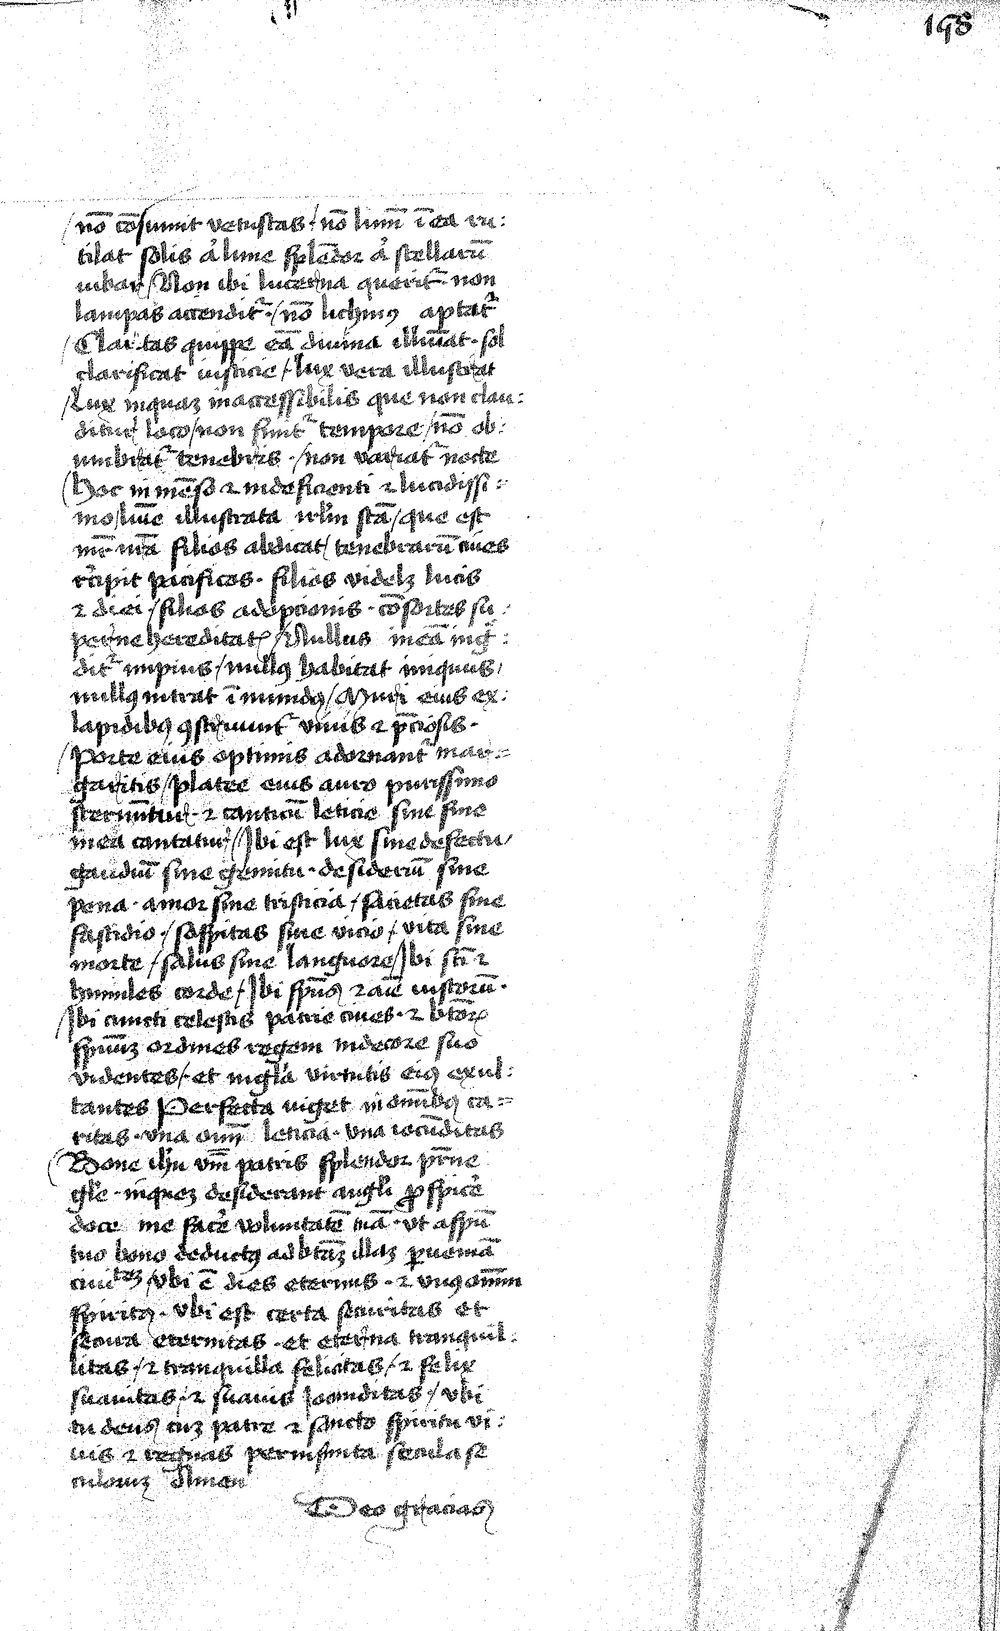 198
nō cōsumit vetustas · nō lumē ī ea ru:
tilat solis aͭ lune splēdor aͭ stellarū
iubar / Non ibi lucerna querit᷑ · non
lampas accendit᷑ · / nō lichinꝰ aptat᷑
Claritas quippe eā diuina illūiat · sol
clarificat iusticie / lux vera illustrat
/ Lux inquaꝫ inaccessibilis que non clau:
ditur loco / non finit᷑ tempore / nō ob:
umbrat᷑ tenebris · / non variat᷑ nocte
Hoc in mēso ⁊ indeficienti ⁊ lucidissi:
mo lūie illustrata irlm̄ stā / que est
mr̄ nr̄a filios abdicat / tenebrarū ciues
rcipit pacificos · filios videlꝫ lucis
⁊ diei / filios adoptionis · cōsortes su:
perne hereditatꝭ / Nullus in eā inḡ:
dit᷑ impius / nullꝰ habitat iniquus /
nullꝰ intrat ī mundꝰ / Muri eius ex:
lapidibꝰ ꝯstruunt᷑ viuis ⁊ p̄ciosis ·
/ Porte eius optimis adornant᷑ mar:
garitis / platee eius auro purissimo
sternūtur · ⁊ canticū leticie sine fine
in ea cantatur / Ibi est lux sine defectu /
gaudiū sine gemitu · desideriū sine
pena · amor sine tristicia / sacietas sine
fastidio · / sospitas sine vicio / vita sine
morte / salus sine languore / Ibi sct̄i ⁊
humiles corde / Ibi sp̄us ⁊ aīe iustorū ·
/ Ibi cuncti celestis patrie ciues · ⁊ bt̄oꝝ
spirituū ordines regem in decore suo
videntes / · et in gl̄a virtutis eiꝰ exul:
tantes Perfecta viget in omībꝰ ca:
ritas · vna oīm leticia · vna iocūditas
Bone ihū vnī patris splendor prn̄e
gl̄e · in queꝫ desiderant angl̄i ꝓspicē
doce me facē voluntatē tuā · vt a spū
tuo bono deductꝰ ad bt̄aꝫ illaꝫ ꝑueniā
ciuitateꝫ / vbi ē dies eternus · ⁊ vnꝰ omīm
spiritꝰ · vbi est certa securitas et
secura eternitas · et eterna tranquil:
litas · / ⁊ tranquilla felicitas / ⁊ felix
suauitas · / ⁊ suauis iocunditas · / vbi
tu deus cuꝫ patre ⁊ sancto spiritu vi:
uis ⁊ regnas per infinita secula se
culoruꝫ Amen
Deo gracias